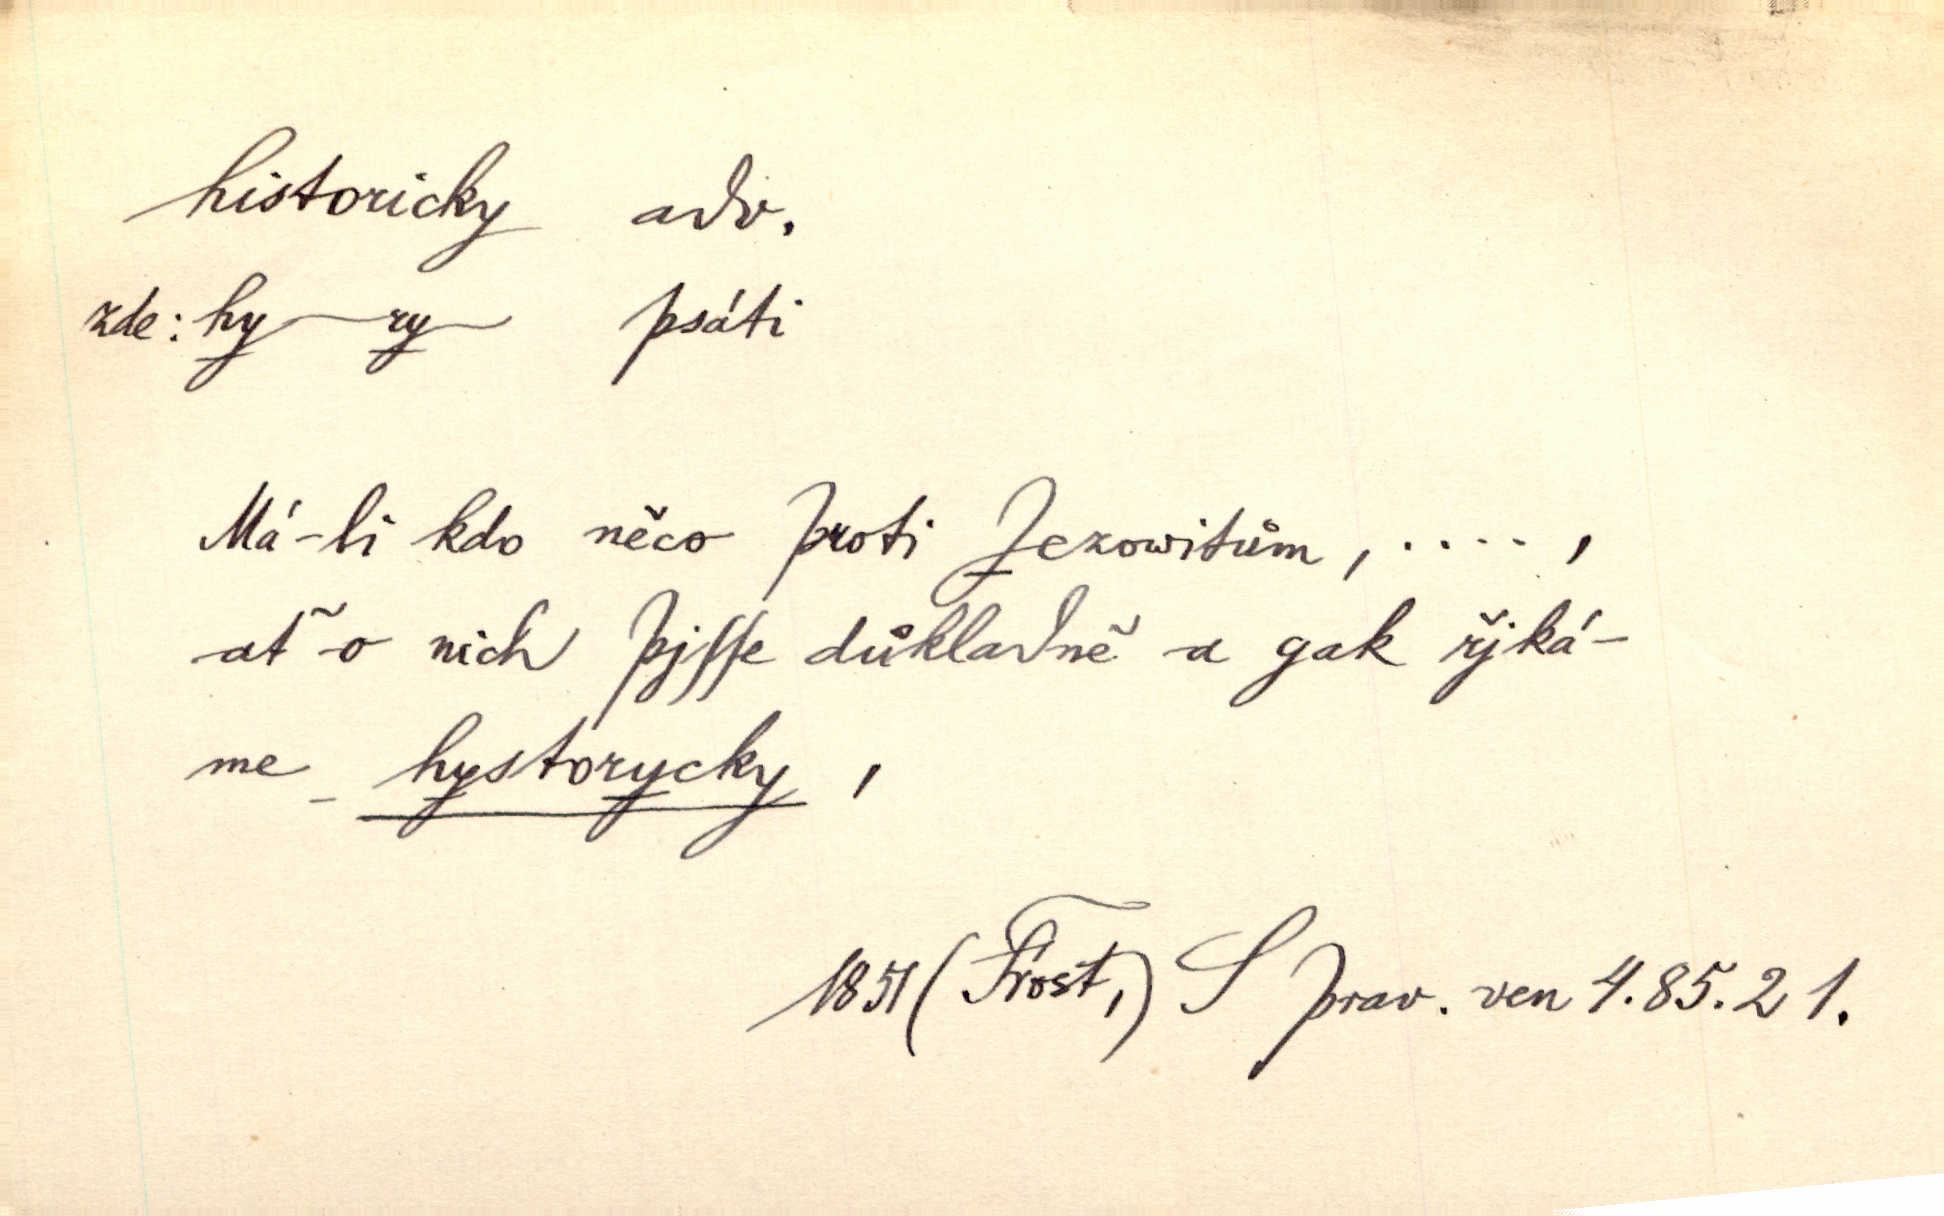 historicky adv.
zde: hy—ry— psáti
Má-li kdo něco proti Jezowitům, . . . . ,
ať o nich pjsse důkladně a gak řjká-
me hystorycky,
1851 (Frost,) S prav. ven 4.85.21.